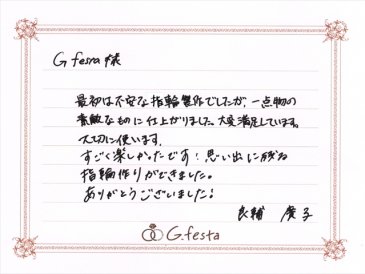 G festa 様
最初は不安な指輪製作でしたが、一点物の
素敵なものに仕上がりました。大変満足しています。
大切に使います。
すごく楽しかったです！思い出に残る
指輪作りができました。
ありがとうございました！
良輔 慶子
G.festa